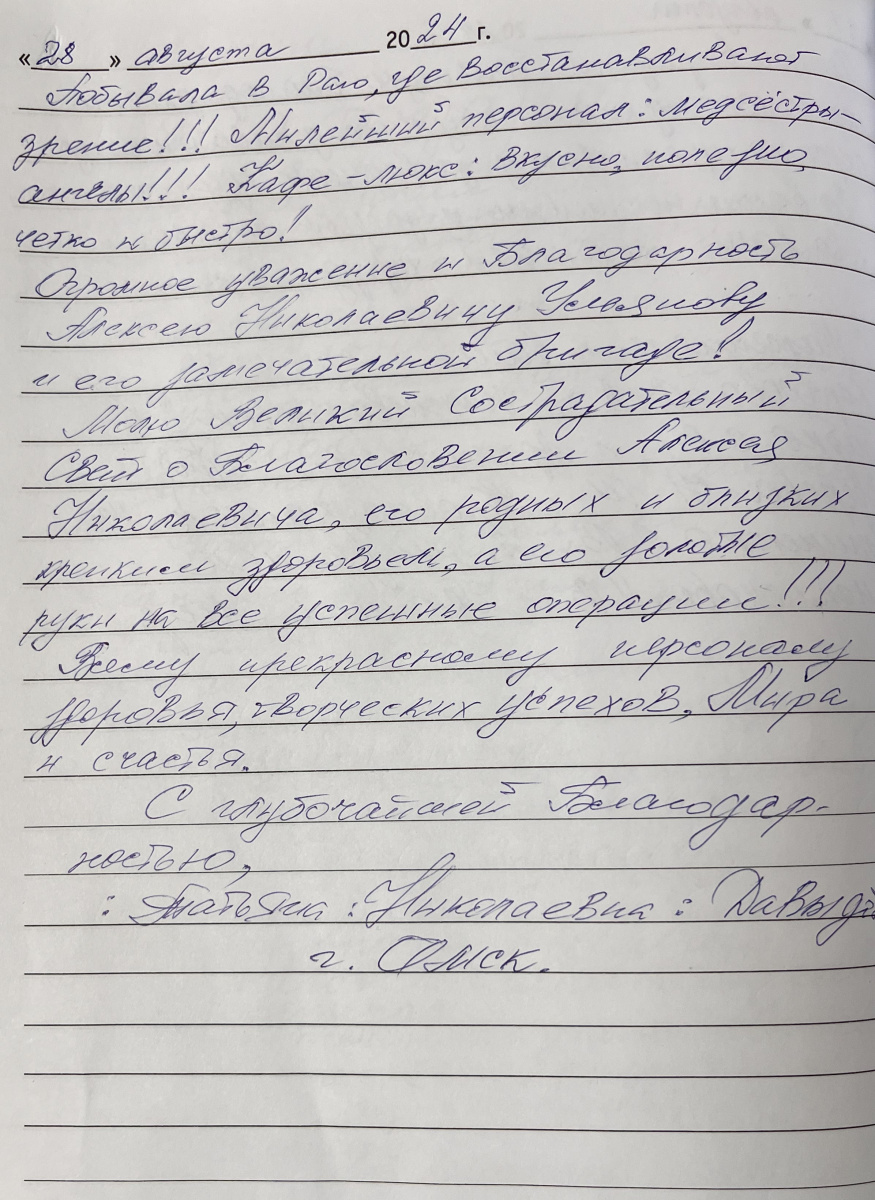 «28» августа 2024 г.
Побывала в Раю, где восстанавливают
зрение!!! Милейший персонал: медсёстры-
ангелы!!! Кафе-люкс: вкусно, полезно,
четко и быстро!
Огромное уважение и Благодарность
Алексею Николаевичу Ульянову
и его замечательной бригаде!
Молю Великий Сострадательный
Свет о Благословении Алексея
Николаевича, его родных и близких
крепким здоровьем, а его золотые
руки на все успешные операции!!!
Всему прекрасному персоналу
здоровья, творческих успехов, Мира
и счастья.
С глубочайшей Благодар-
ностью,
: Татьяна : Николаевна : Давыд
г. Омск.